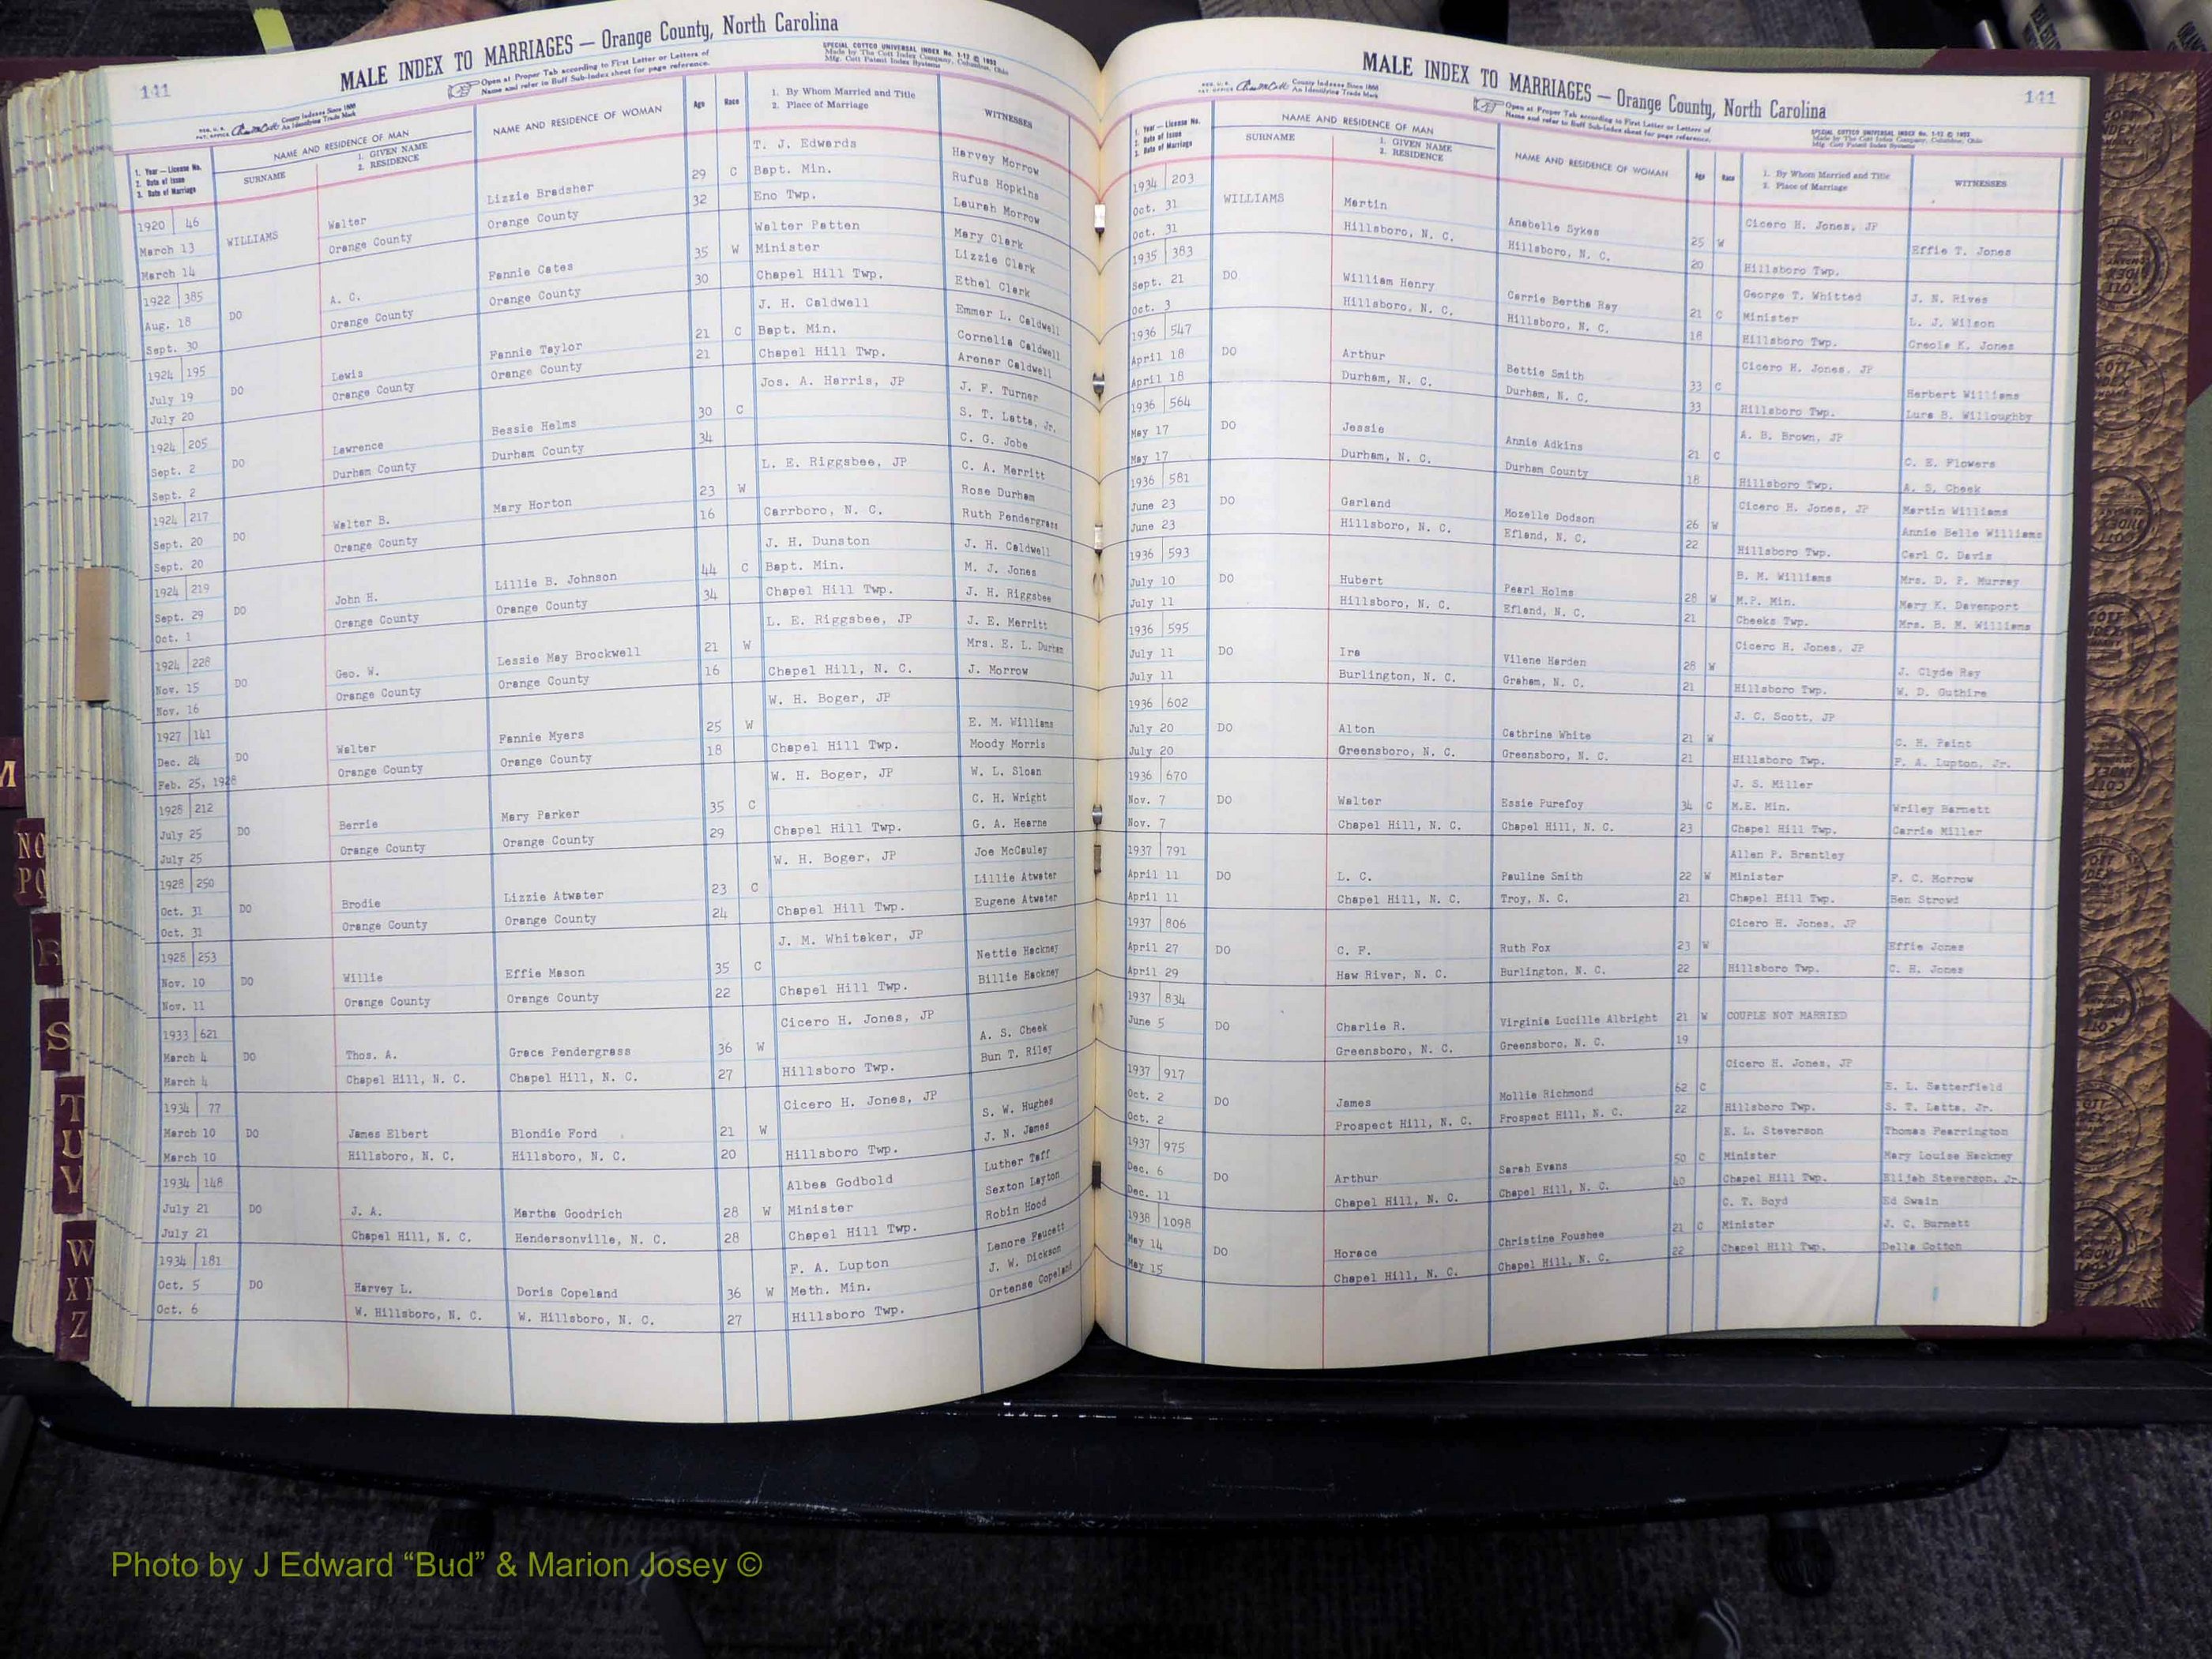 141
MALE INDEX TO MARRIAGES — Orange County, North Carolina
Open at Proper Tab according to First Letter or Letters of
Name and refer to Buff Sub-Index sheet for page reference.
SPECIAL COTTCO UNIVERSAL INDEX No. 1-12 © 1953
Made by The Cott Index Company, Columbus, Ohio
Mfg. Cott Patent Index Systems
County Indexes Since 1888
An Identifying Trade Mark
1. Year — License No.
2. Date of Issue
3. Date of Marriage
NAME AND RESIDENCE OF MAN
SURNAME
1. GIVEN NAME
2. RESIDENCE
NAME AND RESIDENCE OF WOMAN
Age
Race
1. By Whom Married and Title
2. Place of Marriage
WITNESSES
1920 46 T. J. Edwards Harvey Morrow
March 13 WILLIAMS Walter Lizzie Bradsher 29 C Bapt. Min. Rufus Hopkins
March 14 Orange County Orange County 32 Eno Twp. Laurah Morrow
1922 385 Walter Patten Mary Clark
Aug. 18 DO A. C. Fannie Cates 35 W Minister Lizzie Clark
Sept. 30 Orange County Orange County 30 Chapel Hill Twp. Ethel Clark
1924 195 J. H. Caldwell Emmer L. Caldwell
July 19 DO Lewis Fannie Taylor 21 C Bapt. Min. Cornelia Caldwell
July 20 Orange County Orange County 21 Chapel Hill Twp. Arener Caldwell
1924 205 Jos. A. Harris, JP J. F. Turner
Sept. 2 DO Lawrence Bessie Helms 30 C S. T. Latta, Jr.
Sept. 2 Durham County Durham County 34 C. G. Jobe
1924 217 L. E. Riggsbee, JP C. A. Merritt
Sept. 20 DO Walter B. Mary Horton 23 W Rose Durham
Sept. 20 Orange County 16 Carrboro, N. C. Ruth Pendergrass
1924 219 J. H. Dunston J. H. Caldwell
Sept. 29 DO John H. Lillie B. Johnson 44 C Bapt. Min. M. J. Jones
Oct. 1 Orange County Orange County 34 Chapel Hill Twp. J. H. Riggsbee
1924 228 L. E. Riggsbee, JP J. E. Merritt
Nov. 15 DO Geo. W. Lessie May Brockwell 21 W Mrs. E. L. Durham
Nov. 16 Orange County Orange County 16 Chapel Hill, N. C. J. Morrow
1927 141 W. H. Boger, JP
Dec. 24 DO Walter Fannie Myers 25 W E. M. Williams
Feb. 25, 1928 Orange County Orange County 18 Chapel Hill Twp. Moody Morris
1928 212 W. H. Boger, JP W. L. Sloan
July 25 DO Berrie Mary Parker 35 C C. H. Wright
July 25 Orange County Orange County 29 Chapel Hill Twp. G. A. Hearne
1928 250 W. H. Boger, JP Joe McCauley
Oct. 31 DO Brodie Lizzie Atwater 23 C Lillie Atwater
Oct. 31 Orange County Orange County 24 Chapel Hill Twp. Eugene Atwater
1928 253 J. M. Whitaker, JP
Nov. 10 DO Willie Effie Mason 35 C Nettie Hackney
Nov. 11 Orange County Orange County 22 Chapel Hill Twp. Billie Hackney
1933 621 Cicero H. Jones, JP
March 4 DO Thos. A. Grace Pendergrass 36 W A. S. Cheek
March 4 Chapel Hill, N. C. Chapel Hill, N. C. 27 Hillsboro Twp. Bun T. Riley
1934 77 Cicero H. Jones, JP
March 10 DO James Elbert Blondie Ford 21 W S. W. Hughes
March 10 Hillsboro, N. C. Hillsboro, N. C. 20 Hillsboro Twp. J. N. James
1934 148 Albea Godbold Luther Taff
July 21 DO J. A. Martha Goodrich 28 W Minister Sexton Layton
July 21 Chapel Hill, N. C. Hendersonville, N. C. 28 Chapel Hill Twp. Robin Hood
1934 181 F. A. Lupton Lenore Faucett
Oct. 5 DO Harvey L. Doris Copeland 36 W Meth. Min. J. W. Dickson
Oct. 6 W. Hillsboro, N. C. W. Hillsboro, N. C. 27 Hillsboro Twp. Ortense Copeland
141
MALE INDEX TO MARRIAGES — Orange County, North Carolina
Open at Proper Tab according to First Letter or Letters of
Name and refer to Buff Sub-Index sheet for page reference.
SPECIAL COTTCO UNIVERSAL INDEX No. 1-12 © 1953
Made by The Cott Index Company, Columbus, Ohio
Mfg. Cott Patent Index Systems
County Indexes Since 1888
An Identifying Trade Mark
1. Year — License No.
2. Date of Issue
3. Date of Marriage
NAME AND RESIDENCE OF MAN
SURNAME
1. GIVEN NAME
2. RESIDENCE
NAME AND RESIDENCE OF WOMAN
Age
Race
1. By Whom Married and Title
2. Place of Marriage
WITNESSES
1934 203 Cicero H. Jones, JP
Oct. 31 WILLIAMS Martin Anabelle Sykes 25 W Effie T. Jones
Oct. 31 Hillsboro, N. C. Hillsboro, N. C. 20 Hillsboro Twp.
1935 383 George T. Whitted J. N. Rives
Sept. 21 DO William Henry Carrie Bertha Ray 21 C Minister L. J. Wilson
Oct. 3 Hillsboro, N. C. Hillsboro, N. C. 18 Hillsboro Twp. Creole K. Jones
1936 547 Cicero H. Jones, JP
April 18 DO Arthur Bettie Smith 33 C Herbert Williams
April 18 Durham, N. C. Durham, N. C. 33 Hillsboro Twp. Lura B. Willoughby
1936 564 A. B. Brown, JP
May 17 DO Jessie Annie Adkins 21 C C. E. Flowers
May 17 Durham, N. C. Durham County 18 Hillsboro Twp. A. S. Cheek
1936 581 Cicero H. Jones, JP Martin Williams
June 23 DO Garland Mozelle Dodson 26 W Annie Belle Williams
June 23 Hillsboro, N. C. Efland, N. C. 22 Hillsboro Twp. Carl C. Davis
1936 593 B. M. Williams Mrs. D. P. Murray
July 10 DO Hubert Pearl Holms 28 W M.P. Min. Mary K. Davenport
July 11 Hillsboro, N. C. Efland, N. C. 21 Cheeks Twp. Mrs. B. M. Williams
1936 595 Cicero H. Jones, JP
July 11 DO Ira Vilene Harden 28 W J. Clyde Ray
July 11 Burlington, N. C. Graham, N. C. 21 Hillsboro Twp. W. D. Guthire
1936 602 J. C. Scott, JP
July 20 DO Alton Cathrine White 21 W C. H. Paint
July 20 Greensboro, N. C. Greensboro, N. C. 21 Hillsboro Twp. F. A. Lupton, Jr.
1936 670 J. S. Miller
Nov. 7 DO Walter Essie Purefoy 34 C M.E. Min. Wriley Barnett
Nov. 7 Chapel Hill, N. C. Chapel Hill, N. C. 23 Chapel Hill Twp. Carrie Miller
1937 791 Allen P. Brantley
April 11 DO L. C. Pauline Smith 22 W Minister F. C. Morrow
April 11 Chapel Hill, N. C. Troy, N. C. 21 Chapel Hill Twp. Ben Strowd
1937 806 Cicero H. Jones, JP
April 27 DO C. F. Ruth Fox 23 W Effie Jones
April 29 Haw River, N. C. Burlington, N. C. 22 Hillsboro Twp. C. H. Jones
1937 834
June 5 DO Charlie R. Virginia Lucille Albright 21 W COUPLE NOT MARRIED
Greensboro, N. C. Greensboro, N. C. 19
1937 917 Cicero H. Jones, JP
Oct. 2 DO James Mollie Richmond 62 C E. L. Satterfield
Oct. 2 Prospect Hill, N. C. Prospect Hill, N. C. 22 Hillsboro Twp. S. T. Latta, Jr.
1937 975 E. L. Steverson Thomas Pearrington
Dec. 6 DO Arthur Sarah Evans 50 C Minister Mary Louise Hackney
Dec. 11 Chapel Hill, N. C. Chapel Hill, N. C. 40 Chapel Hill Twp. Elijah Steverson, Jr.
1938 1098 C. T. Boyd Ed Swain
May 14 DO Horace Christine Foushee 21 C Minister J. C. Burnett
May 15 Chapel Hill, N. C. Chapel Hill, N. C. 22 Chapel Hill Twp. Della Cotton
M
NO
PQ
R
S
T
U
V
W
XY
Z
Photo by J Edward “Bud” & Marion Josey ©